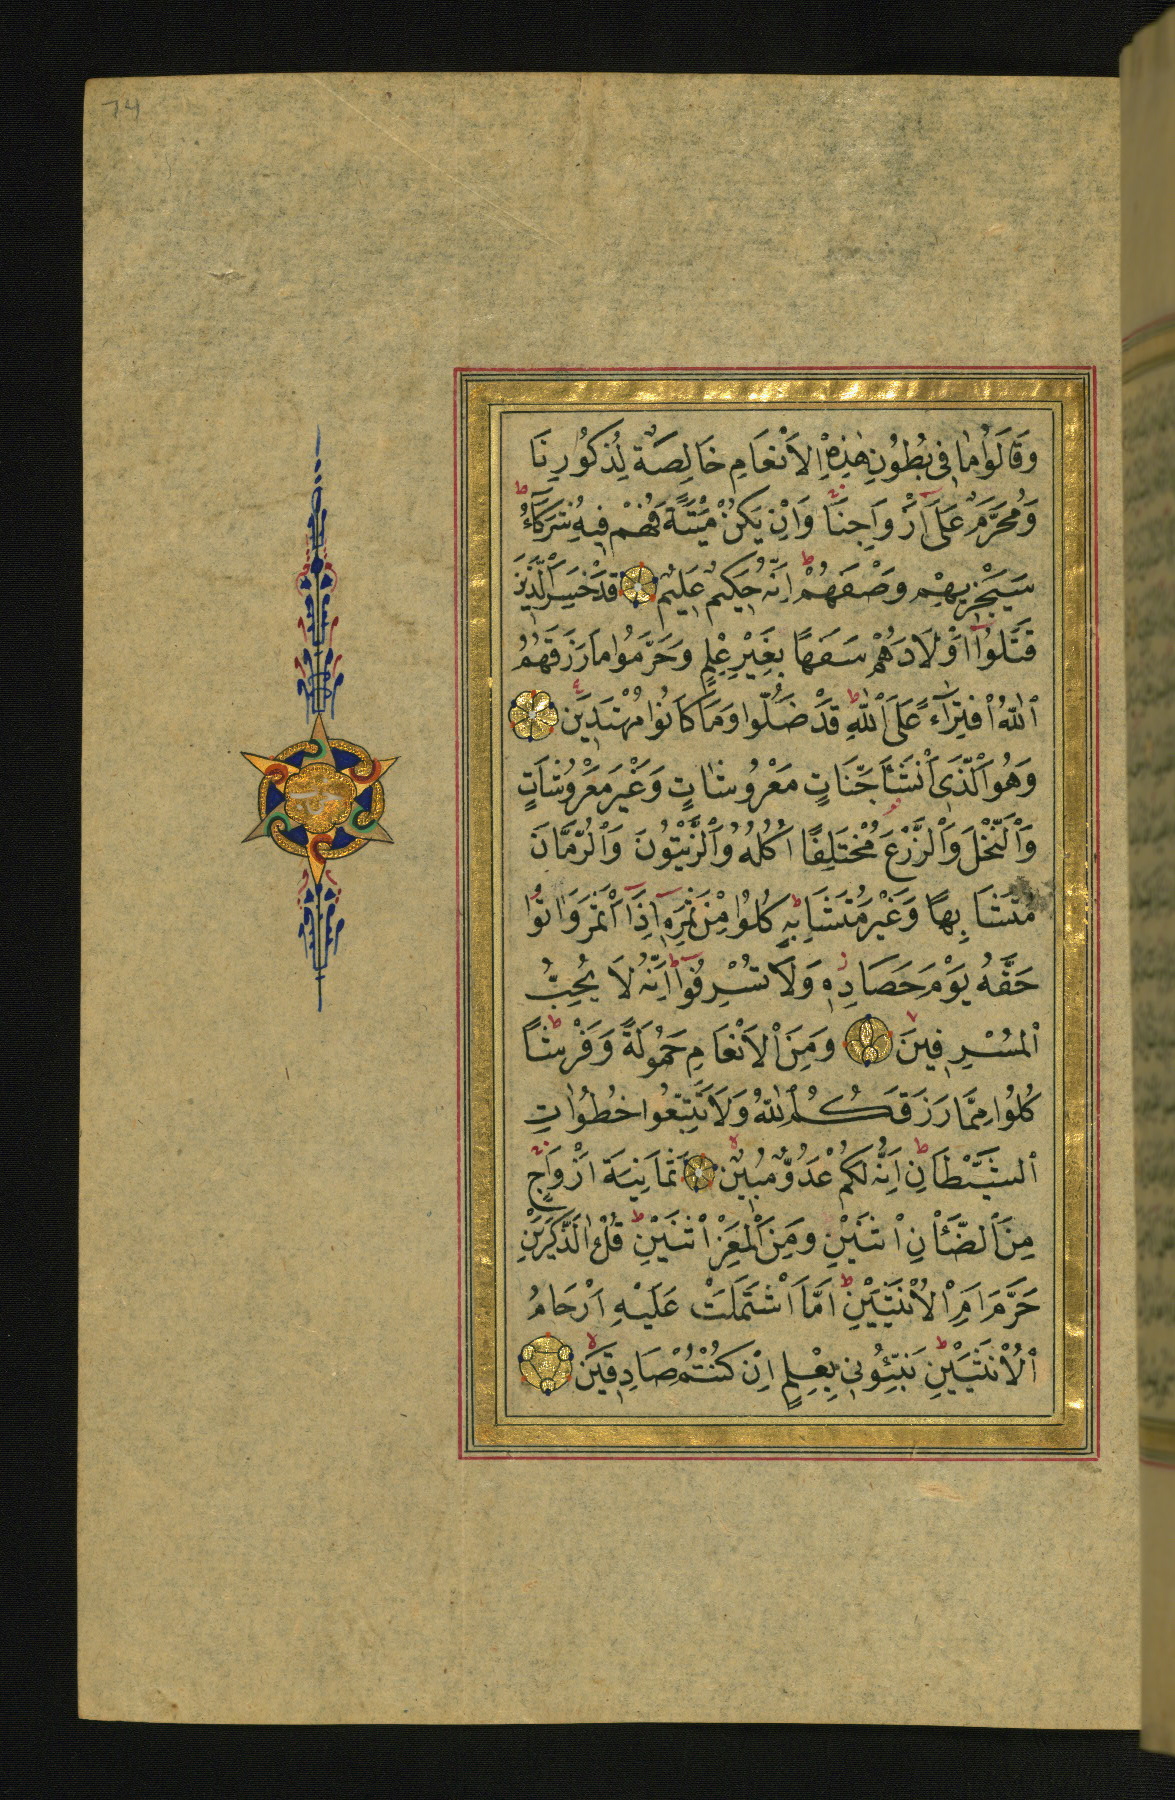 74
وَقَالُوا مَا فِى بُطُونِ هٰذِهِ الْاَنْعَامِ خَالِصَةٌ لِذُكُورِنَا
وَمُحَرَّمٌ عَلَىٓ اَزْوَاجِنَا وَاِنْ يَكُنْ مَيْتَةً فَهُمْ فِيهِ شُرَكَآءُ
سَيَجْزِيهِمْ وَصْفَهُمْ اِنَّهُ حَكِيمٌ عَلِيمٌ قَدْ خَسِرَ الَّذِينَ
قَتَلُوٓا اَوْلَادَهُمْ سَفَهًا بِغَيْرِ عِلْمٍ وَحَرَّمُوا مَا رَزَقَهُمُ
اللّٰهُ افْتِرَآءً عَلَى اللّٰهِ قَدْ ضَلُّوا وَمَا كَانُوا مُهْتَدِينَ
وَهُوَ الَّذِىٓ اَنْشَأَ جَنَّاتٍ مَعْرُوشَاتٍ وَغَيْرَ مَعْرُوشَاتٍ
وَالنَّخْلَ وَالزَّرْعَ مُخْتَلِفًا اُكُلُهُ وَالزَّيْتُونَ وَالرُّمَّانَ
مُتَشَابِهًا وَغَيْرَ مُتَشَابِهٍ كُلُوا مِنْ ثَمَرِهِٓ اِذَآ اَثْمَرَ وَاٰتُوا
حَقَّهُ يَوْمَ حَصَادِهِ وَلَا تُسْرِفُوٓا اِنَّهُ لَا يُحِبُّ
الْمُسْرِفِينَ وَمِنَ الْاَنْعَامِ حَمُولَةً وَفَرْشًا
كُلُوا مِمَّا رَزَقَكُمُ اللّٰهُ وَلَا تَتَّبِعُوا خُطُوَاتِ
الشَّيْطَانِ اِنَّهُ لَكُمْ عَدُوٌّ مُبِينٌ ثَمَانِيَةَ اَزْوَاجٍ
مِنَ الضَّأْنِ اثْنَيْنِ وَمِنَ الْمَعْزِ اثْنَيْنِ قُلْ ءٰالذَّكَرَيْنِ
حَرَّمَ اَمِ الْاُنْثَيَيْنِ اَمَّا اشْتَمَلَتْ عَلَيْهِ اَرْحَامُ
الْاُنْثَيَيْنِ نَبِّئُونِى بِعِلْمٍ اِنْ كُنْتُمْ صَادِقِينَ